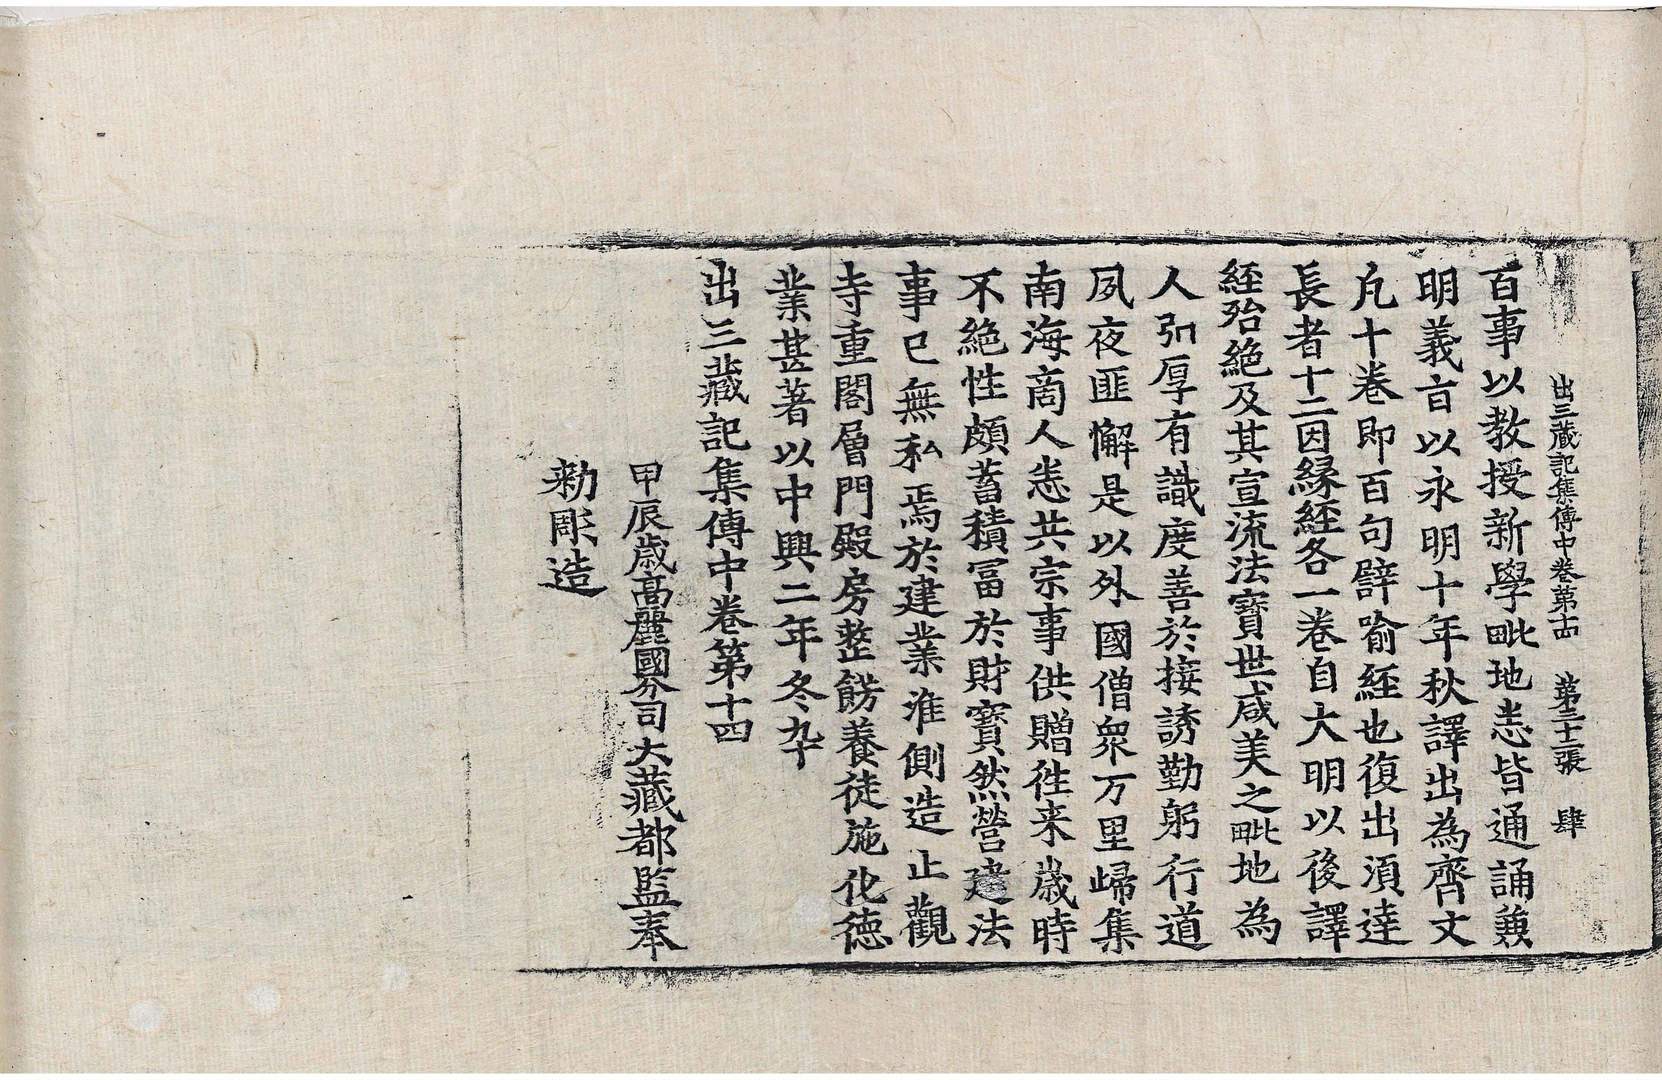 出三藏記集傳中卷第十四　第三十二張　肆
百事以教授新學毗地悉皆通誦兼
明義旨以永明十年秋譯出為齊文
凡十卷即百句譬喻經也復出須達
長者十二因緣經各一卷自大明以後譯
經殆絕及其宣流法寶世咸美之毗地為
人弘厚有識度善於接誘勤躬行道
夙夜匪懈是以外國僧衆万里歸集
南海商人悉共宗事供贈往来歲時
不絕性頗蓄積冨於財寶然營建法
事已無私焉於建業淮側造止觀
寺重閣層門殿房整餝養徒施化德
業甚著以中興二年冬卒
出三藏記集傳中卷第十四
甲辰歲高麗國分司大藏都監奉
勑彫造